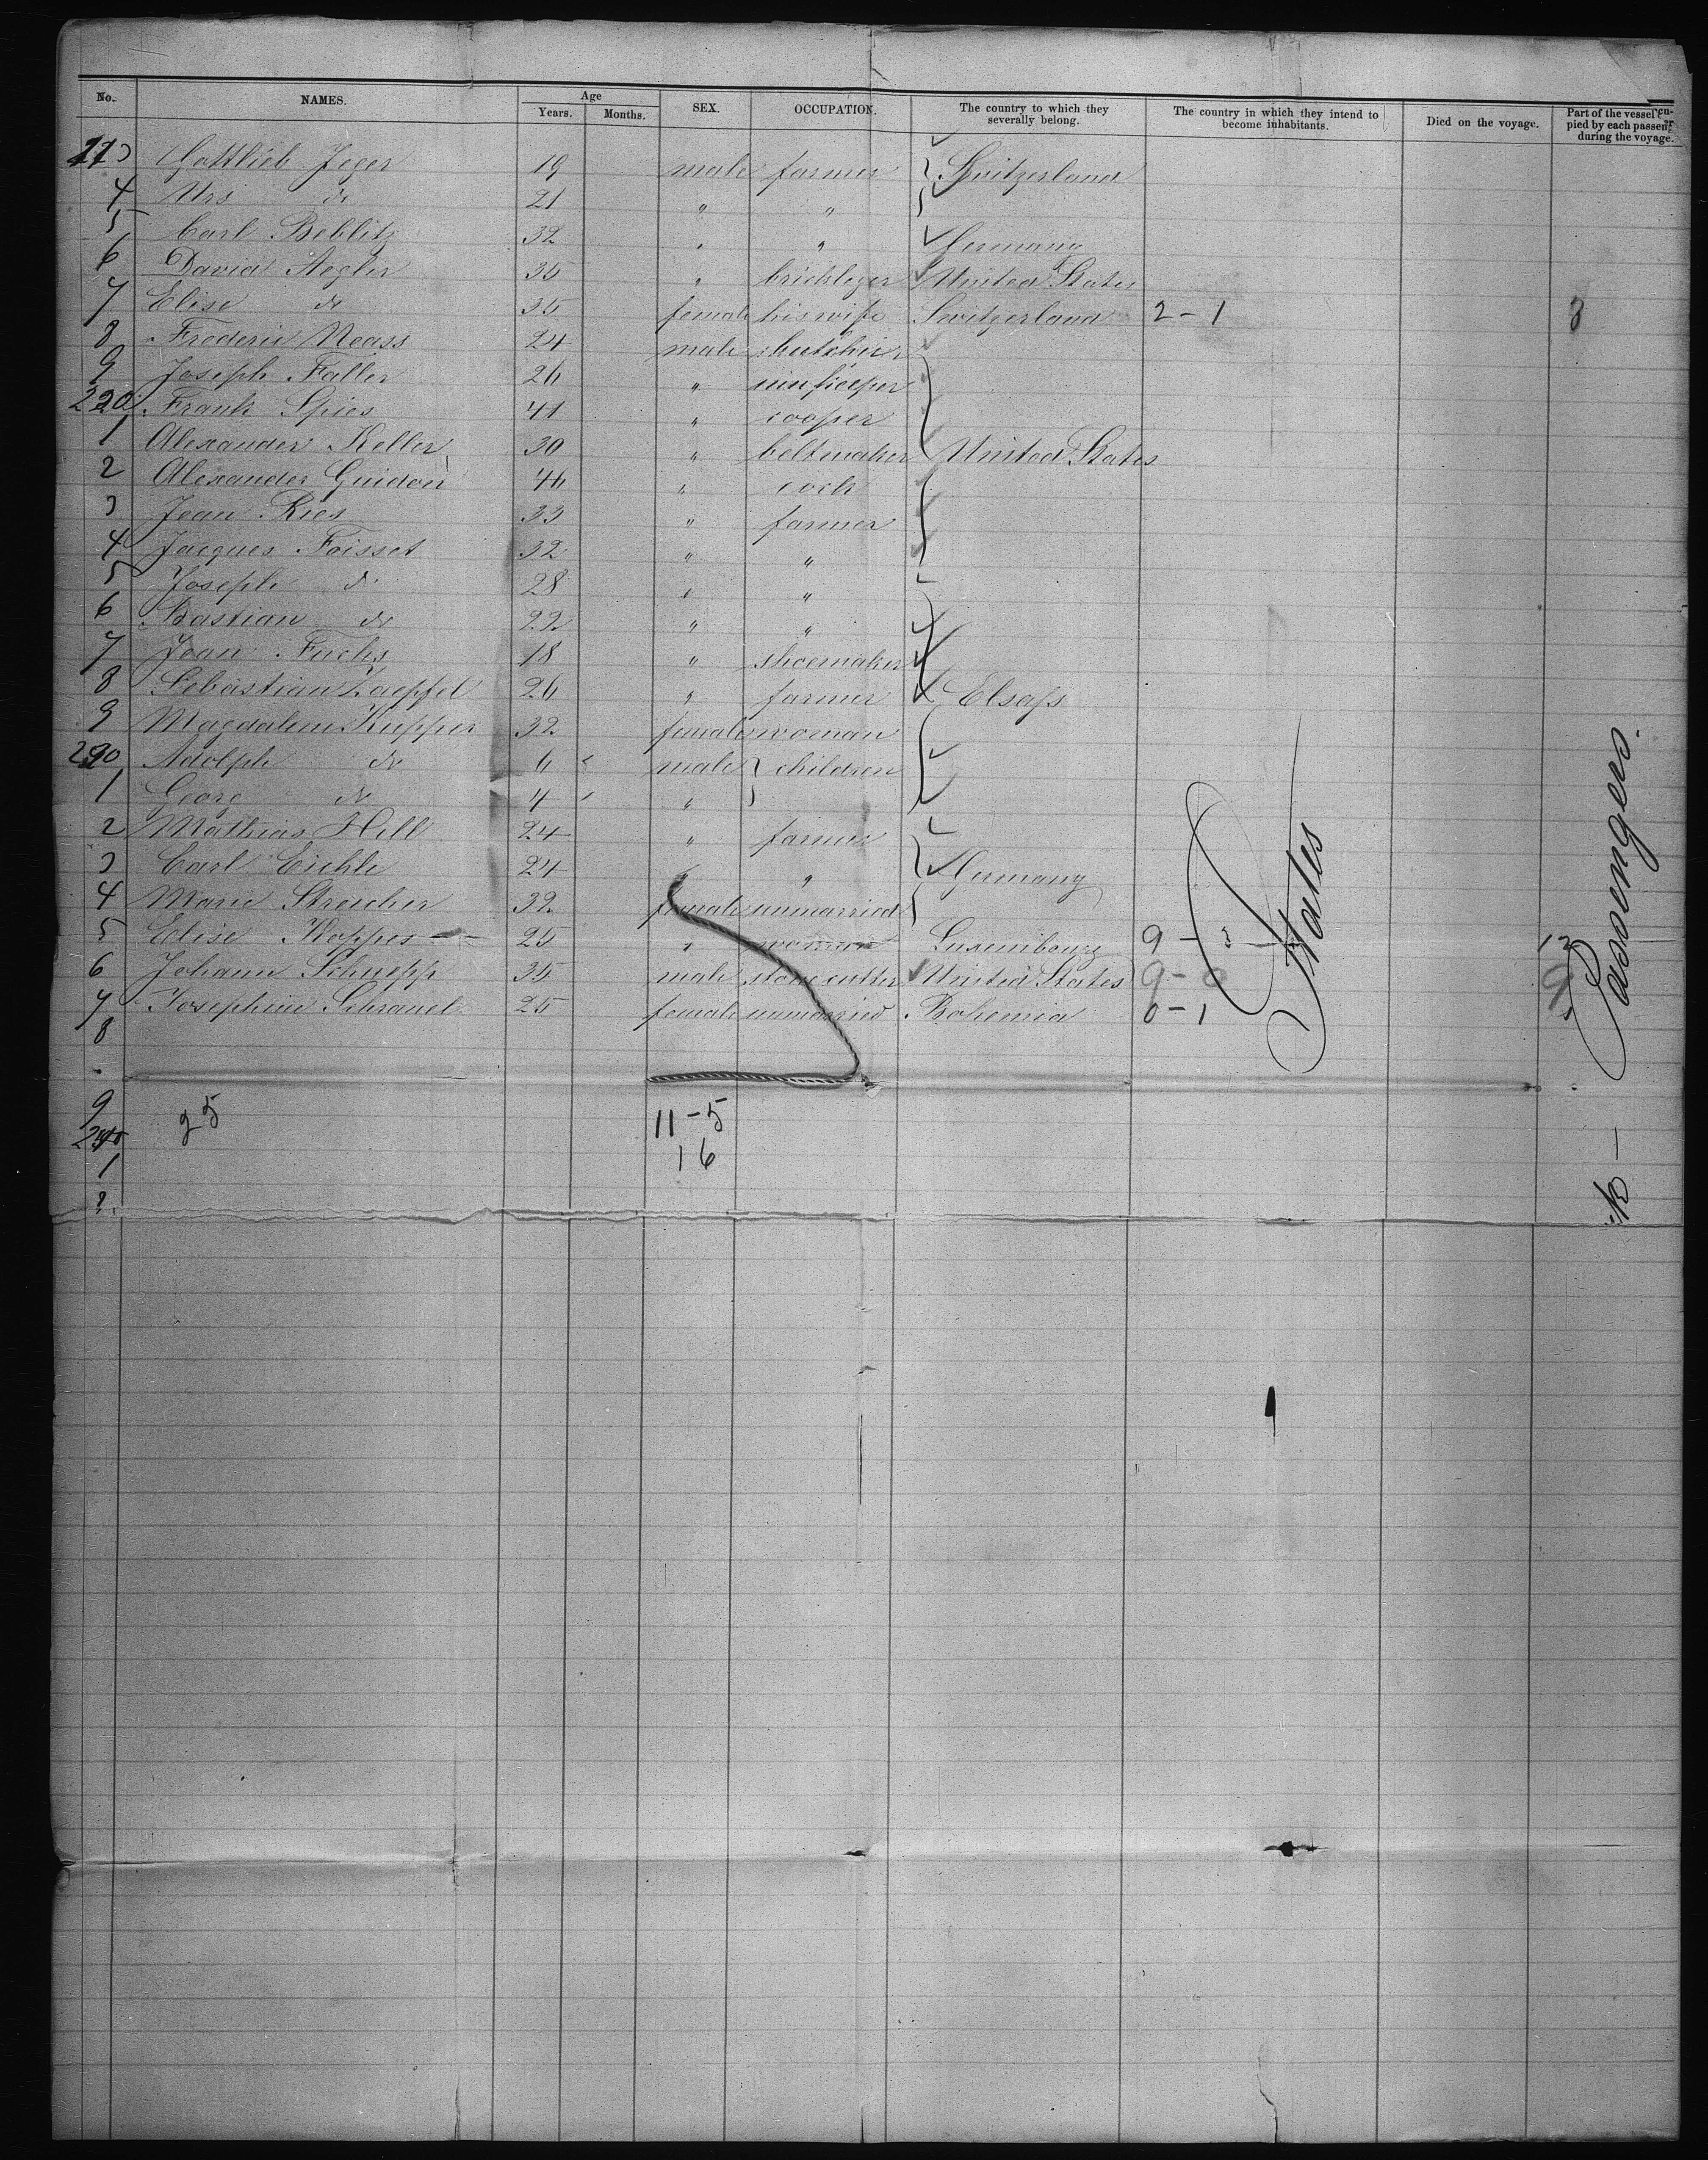 No. NAMES. Age Years. Months. SEX. OCCUPATION. The country to which they severally belong. The country in which they intend to become inhabitants. Died on the voyage. Part of the vessel occupied by each passenger during the voyage.
3 Gottlieb Jeger 19 male farmer Switzerland
4 Urs do 21 " "
5 Carl Beblitz 32 " " Germany
6 David Aegler 35 " brickleger United States
7 Elise do 35 female his wife Switzerland 2 - 1 3
8 Frederic Neass 24 male butcher
9 Joseph Faller 26 " innkeeper
220 Frank Spies 41 " cooper
1 Alexander Keller 30 " beltmaker United States
2 Alexander Guidon 46 " cock
3 Jean Ries 33 " farmer
4 Jacques Foisset 32 " "
5 Joseph do 28 " "
6 Bastian do 22 " "
7 Jean Fuchs 18 " shoemaker
8 Sebastian Zaepfel 26 " farmer Elsaſs
9 Magdalena Kupper 32 female woman
230 Adolph do 6 male children
1 Georg do 4 "
2 Mathias Hill 24 " farmer
3 Carl Eichle 24 " " Germany
4 Marie Streicher 32 female unmarried
5 Elise Hoppes 25 " woman Luxembourg 9 - 3 12
6 Johann Schnepp 35 male stone cutter United States 9 - 0 9
7 Josephine Schranek 25 female unmarried Bohemia 0 - 1
8
9
240
1
2
25
11 - 5
16
States
Passengers.